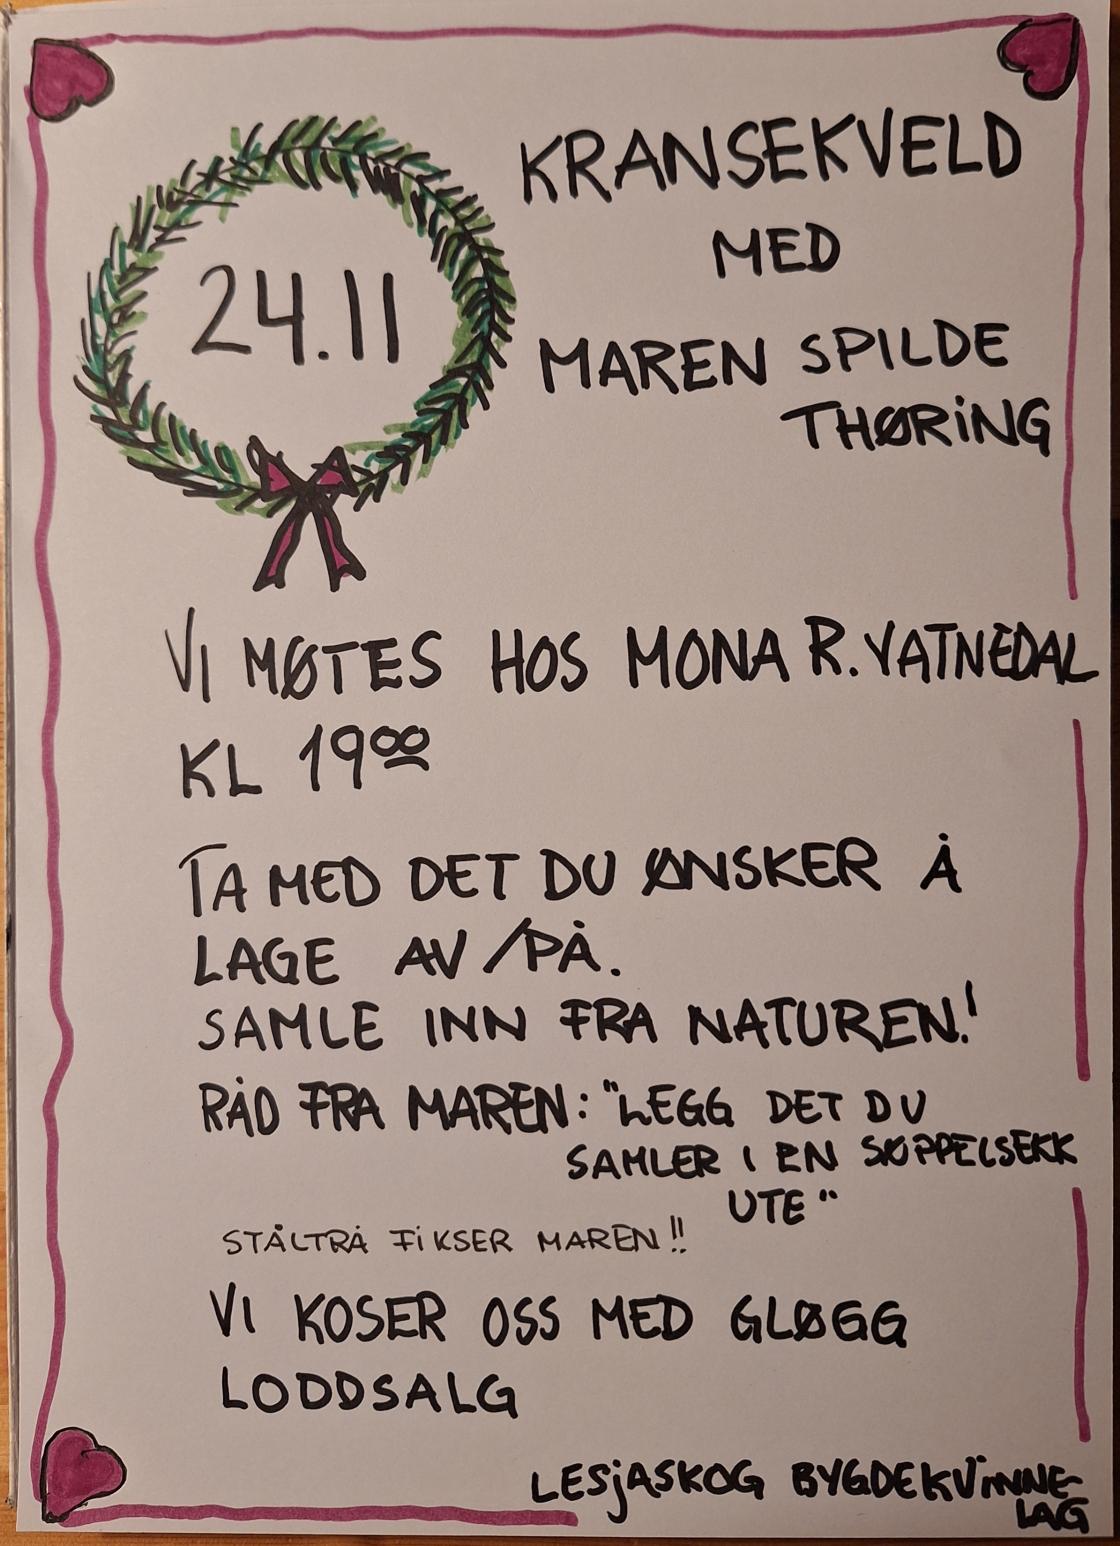 24.11
KRANSEKVELD
MED
MAREN SPILDE
THØRING
VI MØTES HOS MONA R. VATNEDAL
KL 1900
TA MED DET DU ØNSKER Å
LAGE AV /PÅ.
SAMLE INN FRA NATUREN!
RÅD FRA MAREN: "LEGG DET DU
SAMLER I EN SØPPELSEKK
UTE"
STÅLTRÅ FIKSER MAREN!!
VI KOSER OSS MED GLØGG
LODDSALG
LESJASKOG BYGDEKVINNE-
LAG